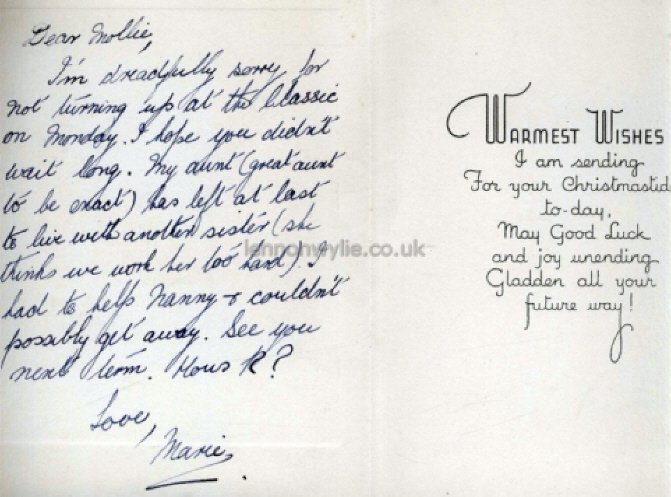 Dear Mollie,
I'm dreadfully sorry for
not turning up at the Classic
on Monday. I hope you didn't
wait long. My aunt (great aunt
to be exact) has left at last
to live with another sister (she
thinks we work her too hard). I
had to help Nanny & couldn't
possibly get away. See you
next term. Hows R?
Love,
Marie
lennonwylie.co.uk
WARMEST WISHES
I am sending
For your Christmastid
to-day,
May Good Luck
and joy unending
Gladden all your
future way!